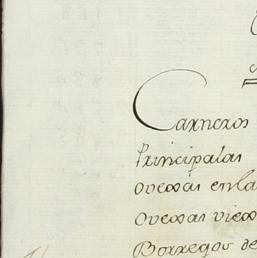 Carneros
Principalas
ovexas en la
Ovexas viex
Borregos de